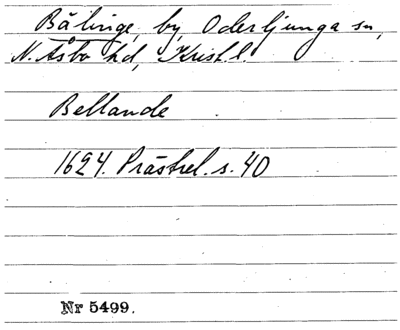 Bälinge, by, Oderljunga sn,
N. Åsbo hd, Krist. l.
Bellande
1624. Prästrel. s. 40
Nr 5499.